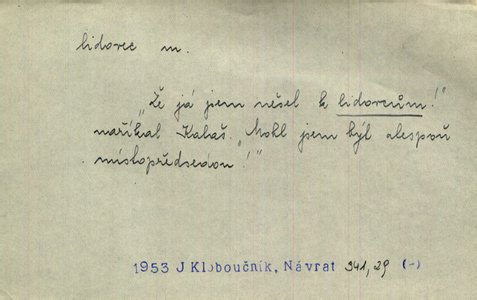 lidovec m.
"Že já jsem nešel k lidovcům!"
naříkal Kalaš. "Mohl jsem být alespoň
místopředsedou!"
1953 J Kloboučník, Návrat 341,29 (-)